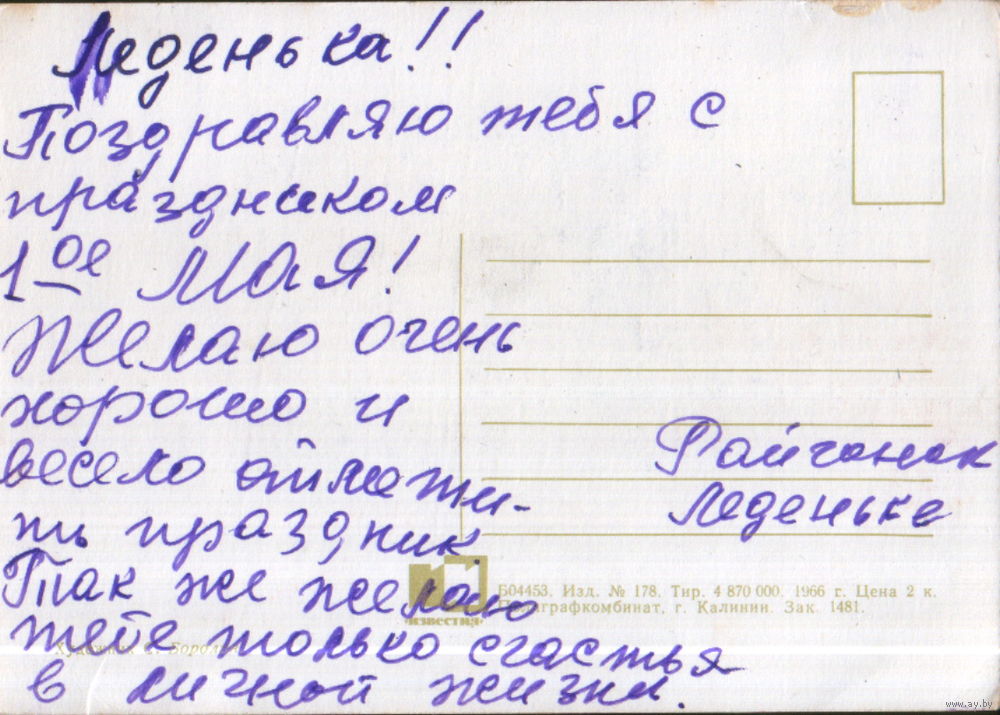 Леденька!!
Поздравляю тебя с
праздником
1ое МАЯ!
Желаю очень
хорошо и
весело отмети-
ть праздник
Так же желаю
тебе только счастья
в личной жизни.
Райчонак
Леденьке
Б04453. Изд. № 178. Тир. 4 870 000. 1966 г. Цена 2 к.
Полиграфкомбинат, г. Калинин. Зак. 1481.
ИЗВЕСТИЯ
www.ay.by